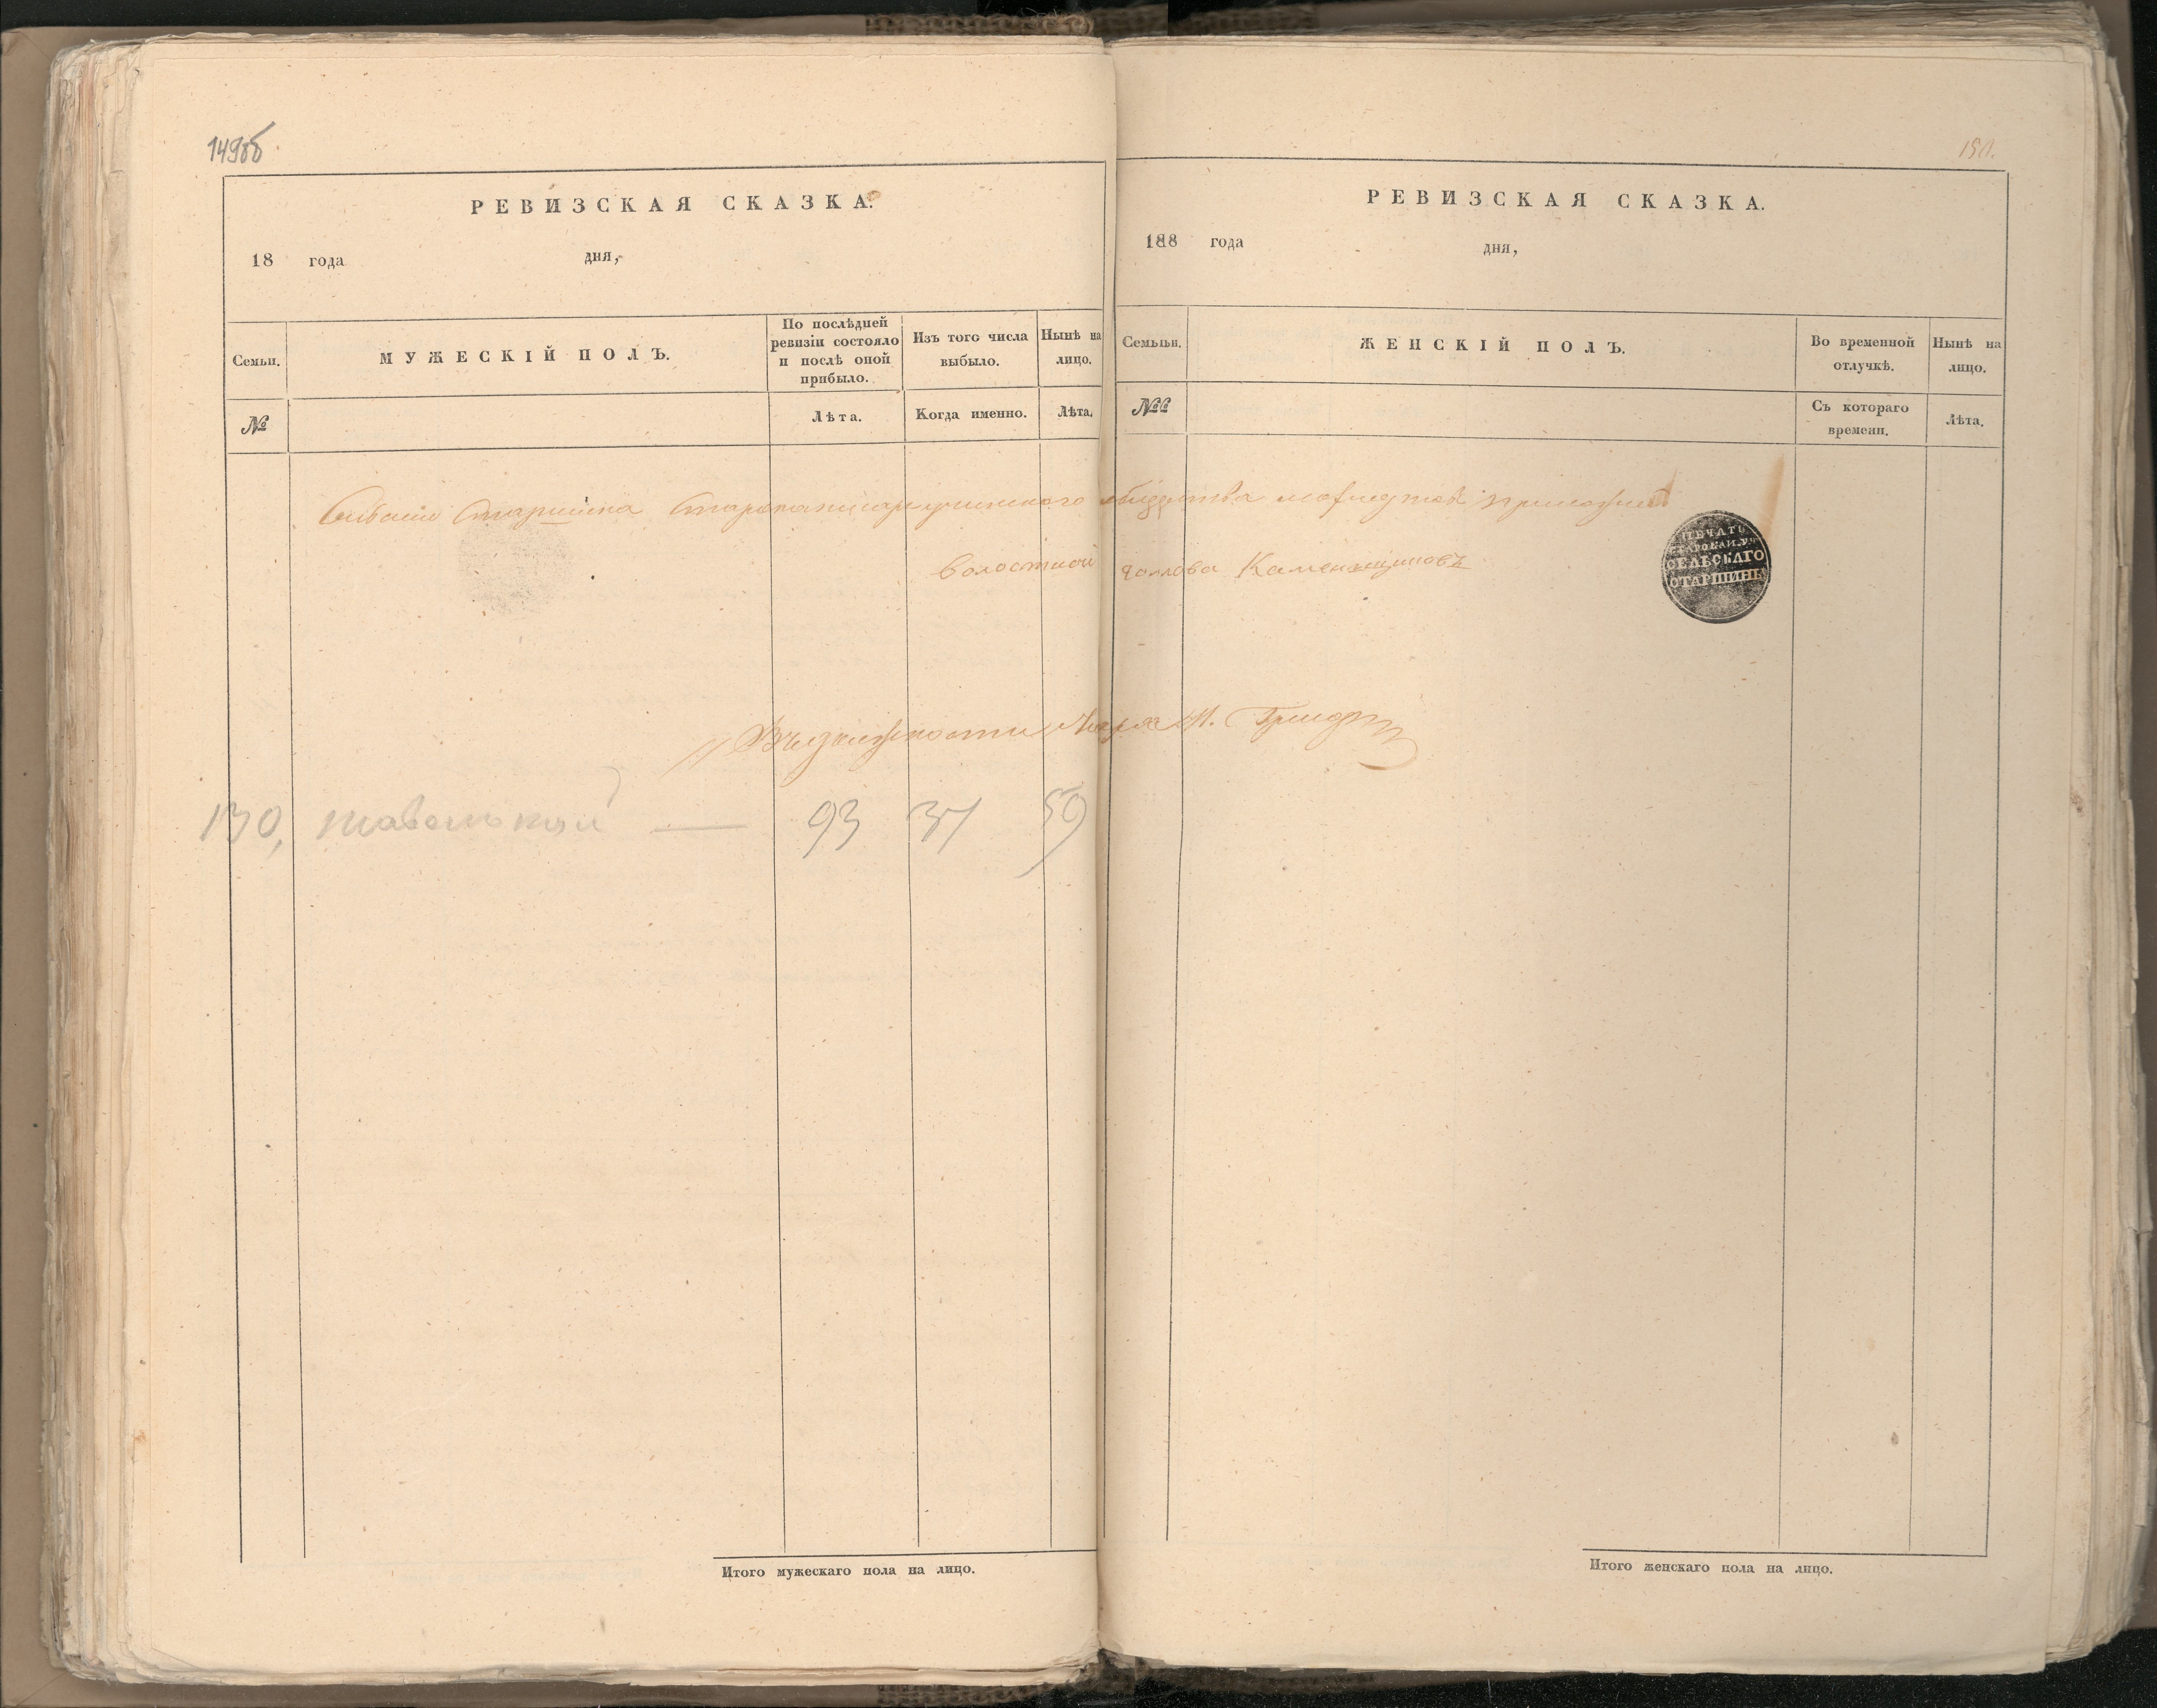 149об
РЕВИЗСКАЯ СКАЗКА.
18 года дня,
Семьи.
МУЖЕСКІЙ ПОЛЪ.
По послѣдней ревизіи состояло и послѣ оной прибыло.
Изъ того числа выбыло.
Нынѣ на лицо.
№
Лѣта.
Когда именно.
Лѣта.
130,
93 37 59
Итого мужескаго пола на лицо.
150.
РЕВИЗСКАЯ СКАЗКА.
188 года дня,
Семьи.
ЖЕНСКІЙ ПОЛЪ.
Во временной отлучкѣ.
Нынѣ на лицо.
№
Съ котораго времени.
Лѣта.
Старшина общества приложилъ
волостной голова Каменьщиковъ
ПЕЧАТЬ
СЕЛЬСКАГО
СТАРШИНЫ
Итого женскаго пола на лицо.